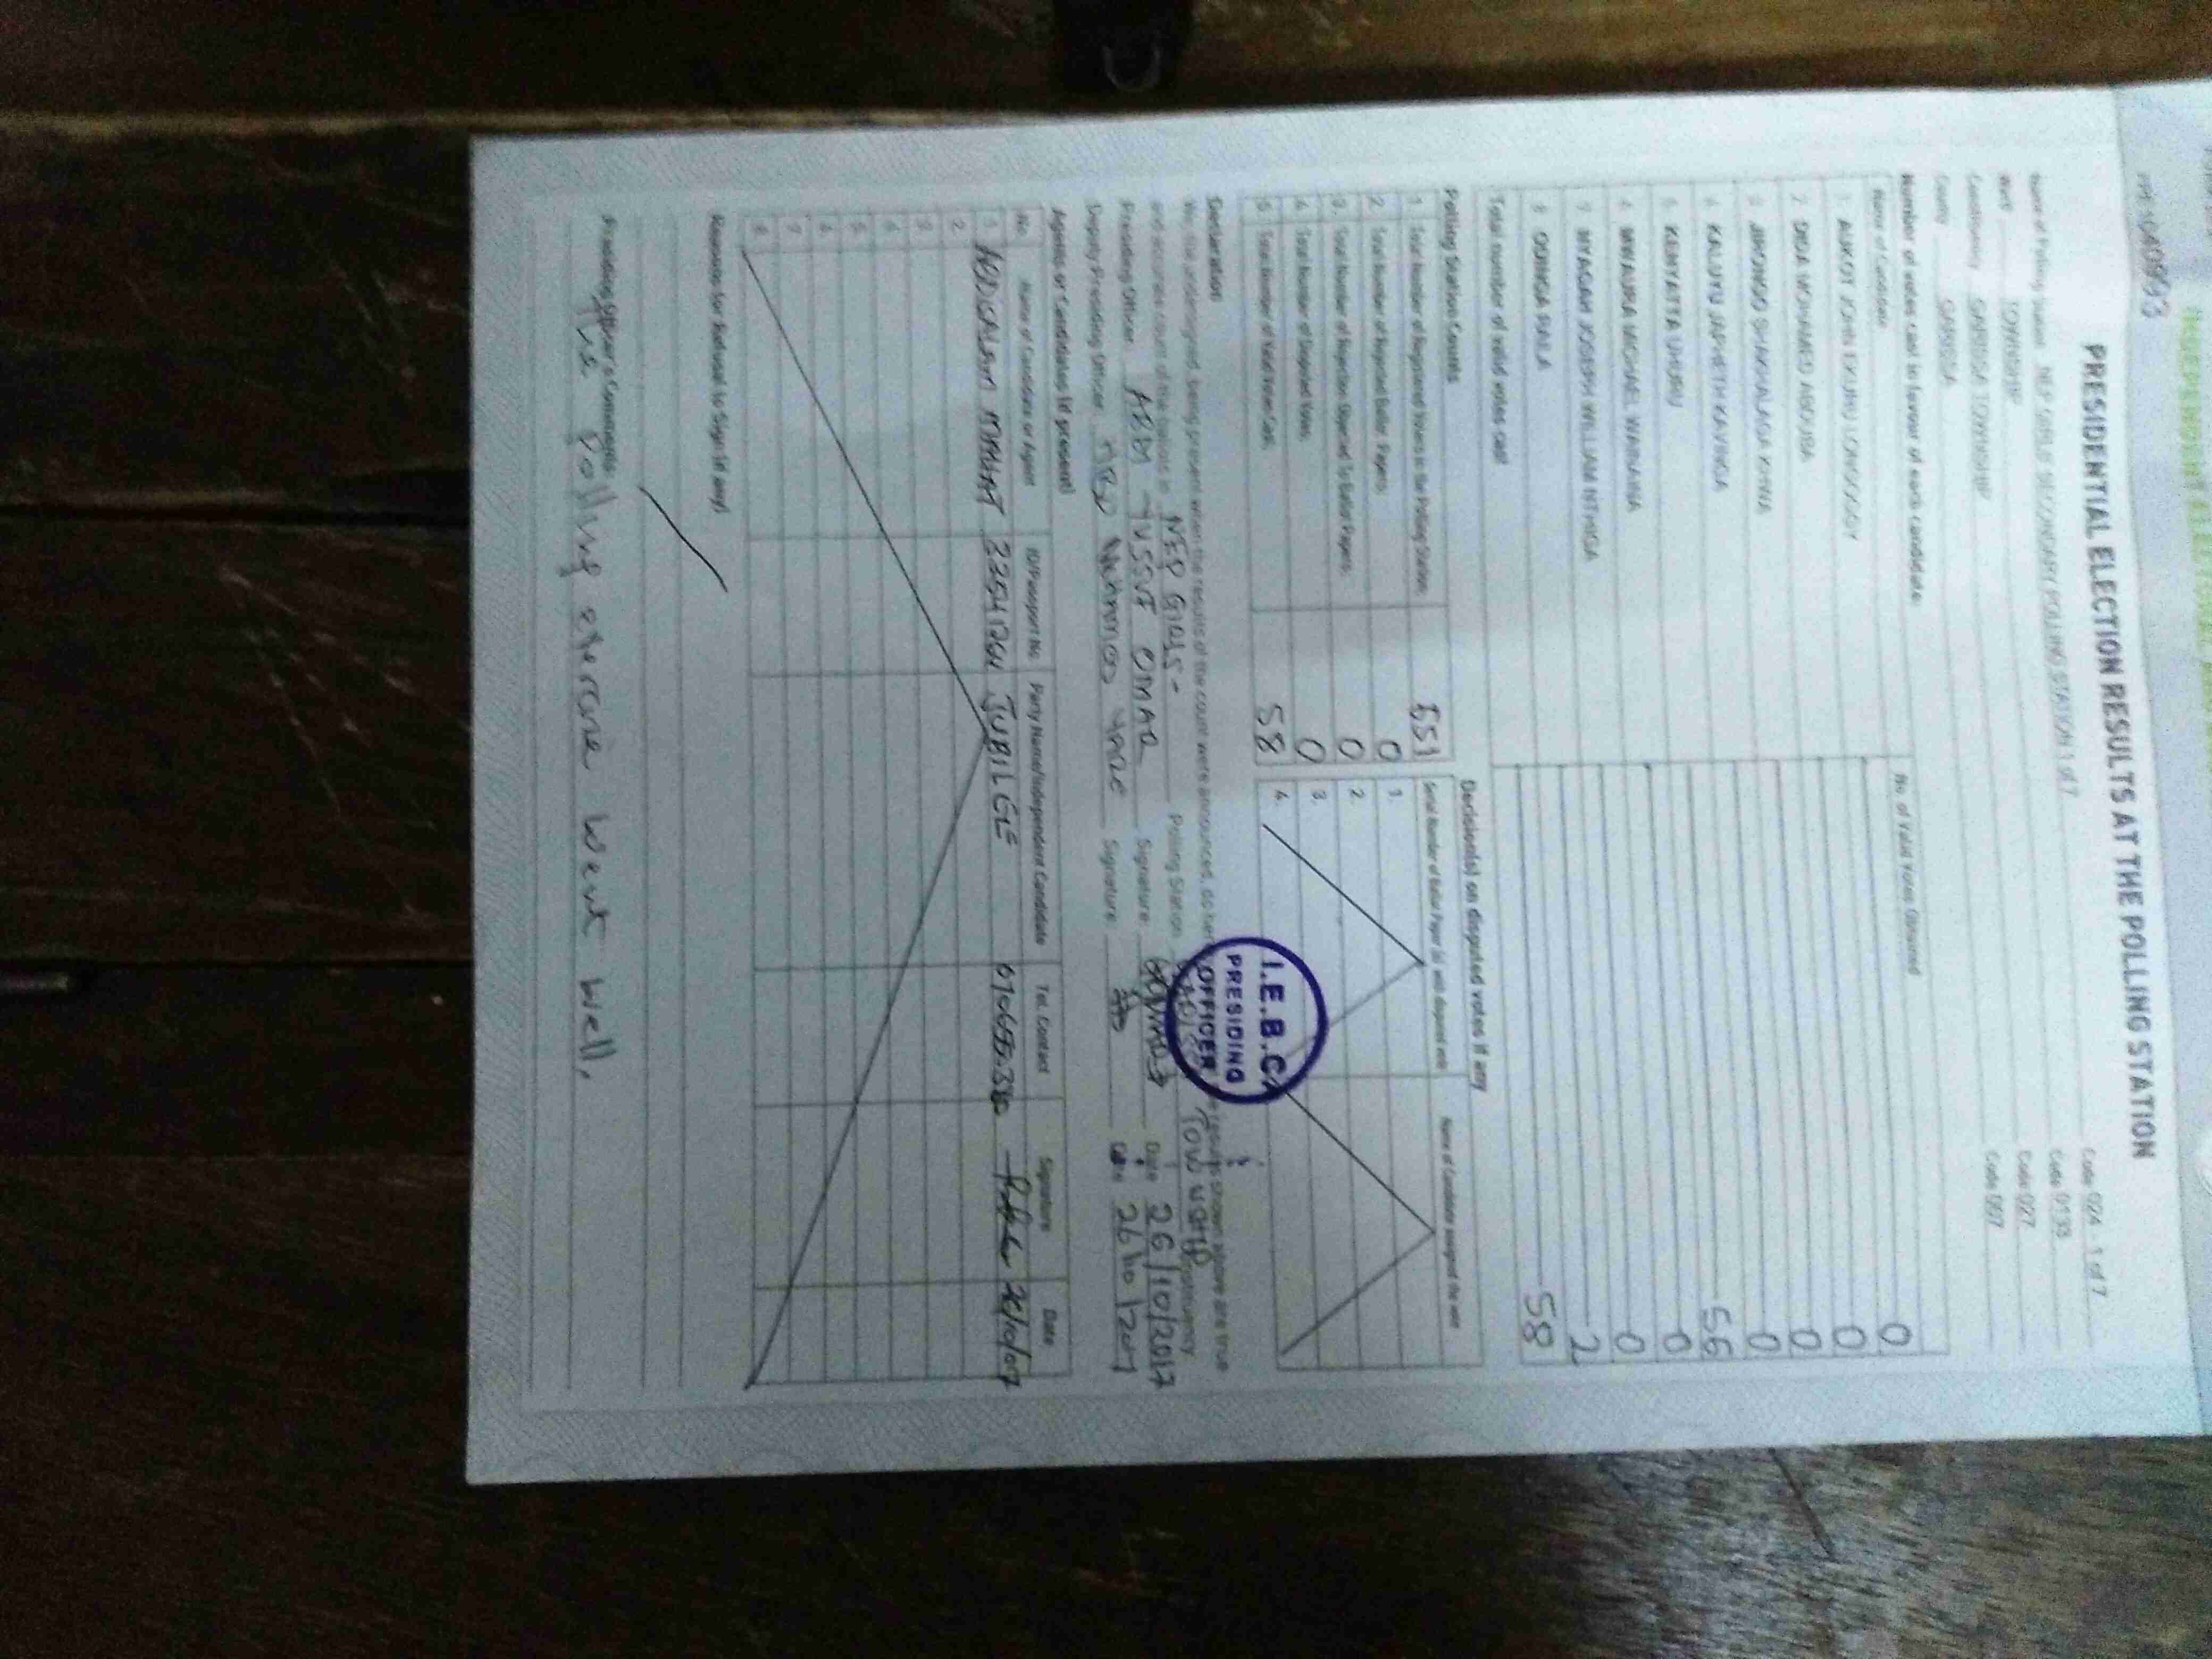 PRESIDENTIAL ELECTION RESULTS AT THE POLLING STATION
Name of Polling Station NEP GIRLS SECONDARY POLLING STATION 1 of 7 Code 024 - 1 of 7
Ward TOWNSHIP Code 0133
Constituency GARISSA TOWNSHIP Code 027
County GARISSA Code 007
Number of votes cast in favour of each candidate:
Name of Candidate No. of Valid Votes Obtained
1 AUKOT JOHN EKURU LONGOGGY 0
2 DIDA MOHAMED ABDUBA 0
3 JIRONGO SHAKHALAGA KHWA 0
4 KALUYU JAPHETH KAVINGA 0
5 KENYATTA UHURU 56
6 MWAURA MICHAEL WAINAINA 0
7 NYAGAH JOSEPH WILLIAM NTHIGA 0
8 ODINGA RAILA 2
Total number of valid votes cast 58
Polling Station Counts
1. Total Number of Registered Voters in the Polling Station: 651
2. Total Number of Rejected Ballot Papers: 0
3. Total Number of Rejection Objected To Ballot Papers: 0
4. Total Number of Disputed Votes: 0
5. Total Number of Valid Votes Cast: 58
Decision(s) on disputed votes if any
Serial Number of Ballot Paper (s) with disputed vote Name of Candidate assigned the vote
1.
2.
3.
4.
I.E.B.C.
PRESIDING
OFFICER
Declaration
We, the undersigned, being present when the results of the count were announced, do results shown above are true
and accurate count of the ballots in NEP GIRLS - Polling Station Township Constituency
Presiding Officer ABDI YUSSUF OMAR Signature: Date 26/10/2017
Deputy Presiding Officer Signature: Date 26/10/2017
Agents or Candidates (if present)
No. Name of Candidate or Agent ID/Passport No. Party Name/Independent Candidate Tel. Contact Signature Date
1. JUBILEE
2.
3.
4.
5.
6.
7.
8.
Reasons for Refusal to Sign (if any)
Presiding Officer's Comments
The polling exercise went well.